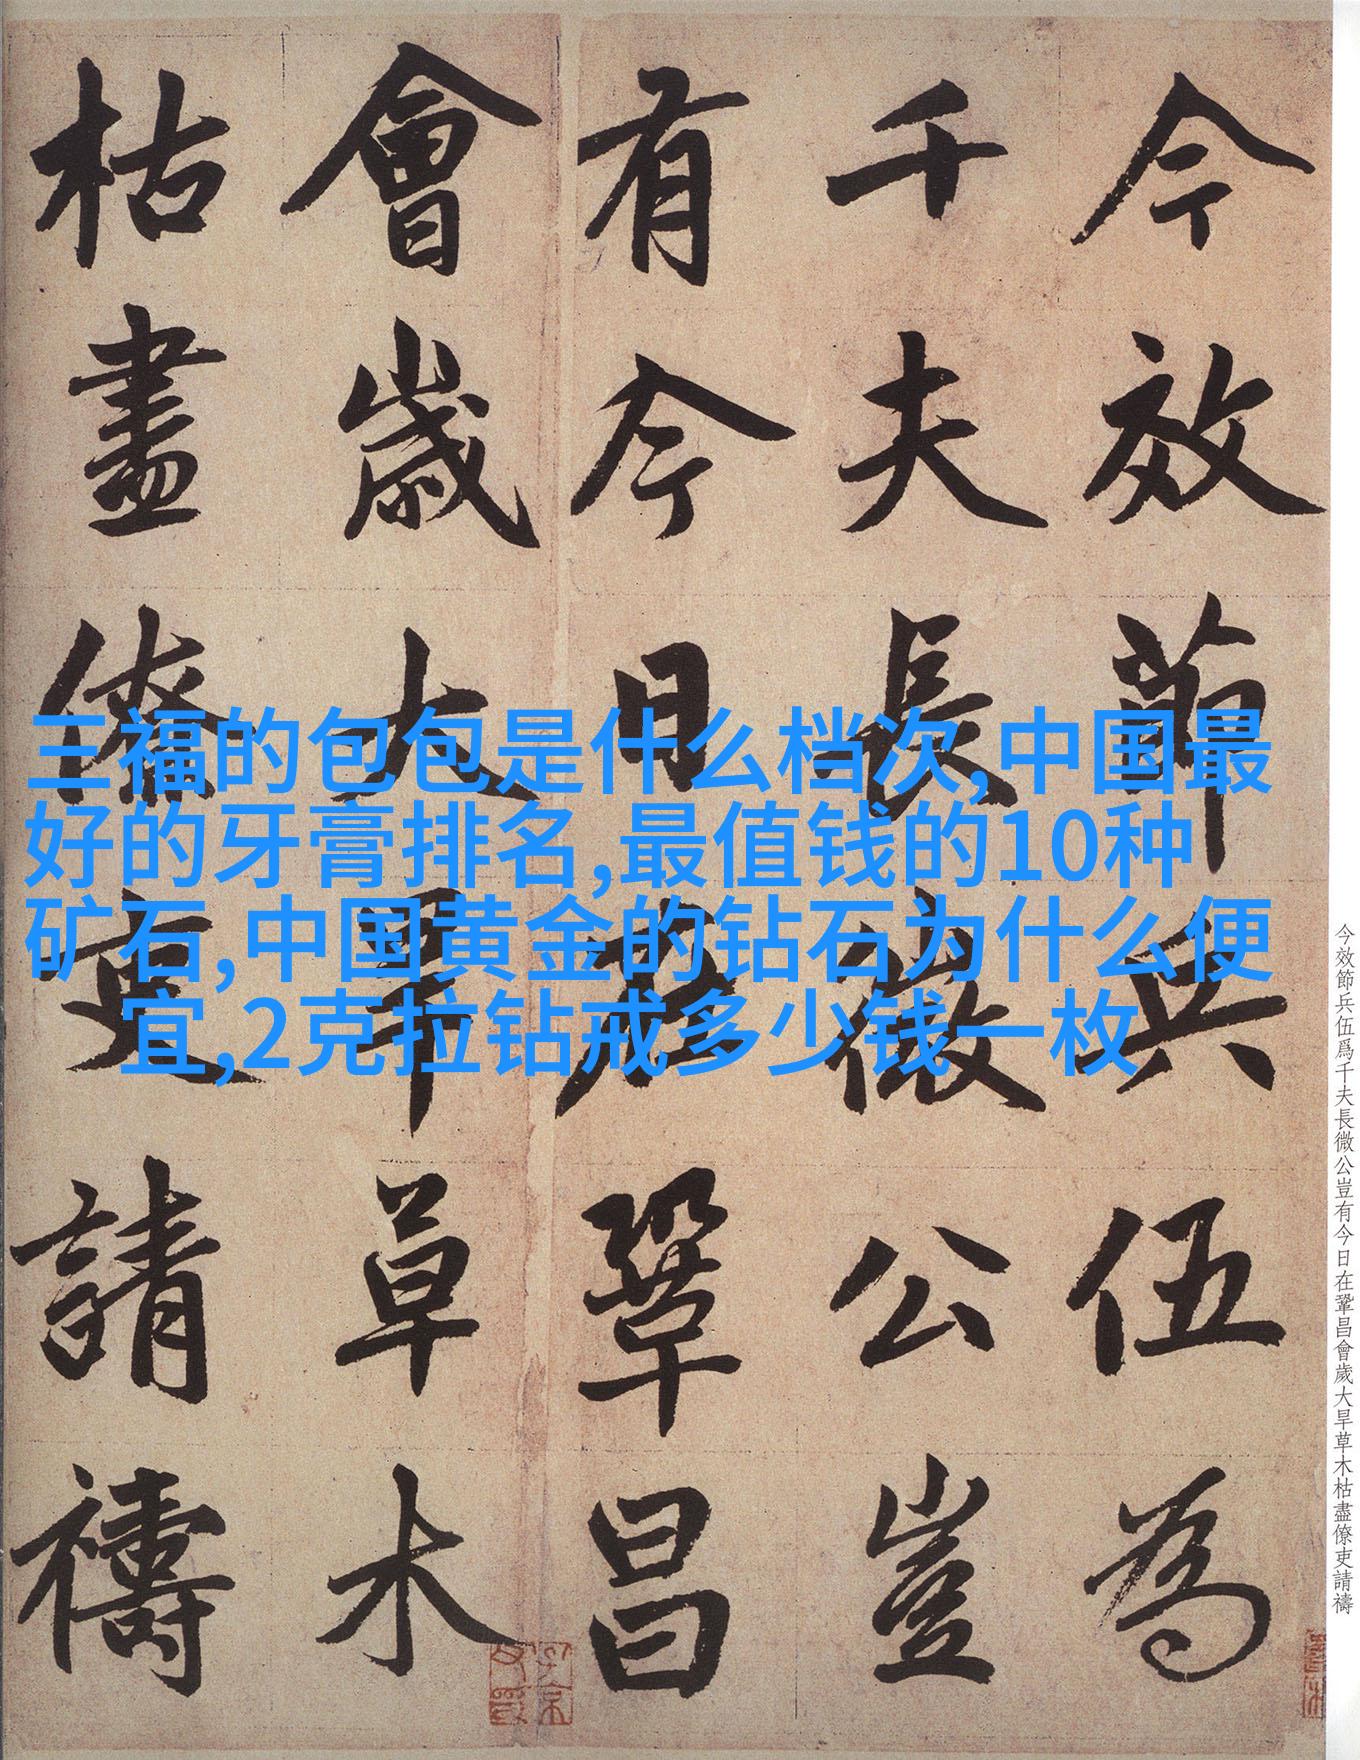 今效節兵伍為
千夫長微公豈
有今日在鞏昌
會歲大旱草木
枯盡僚吏請禱
三福的包包是什么档次,中国最
好的牙膏排名,最值钱的10种
矿石,中国黄金的钻石为什么便
宜,2克拉钻戒多少钱一枚
今效節兵伍爲千夫長微公豈有今日在鞏昌會歲大旱草木枯盡僚吏請禱